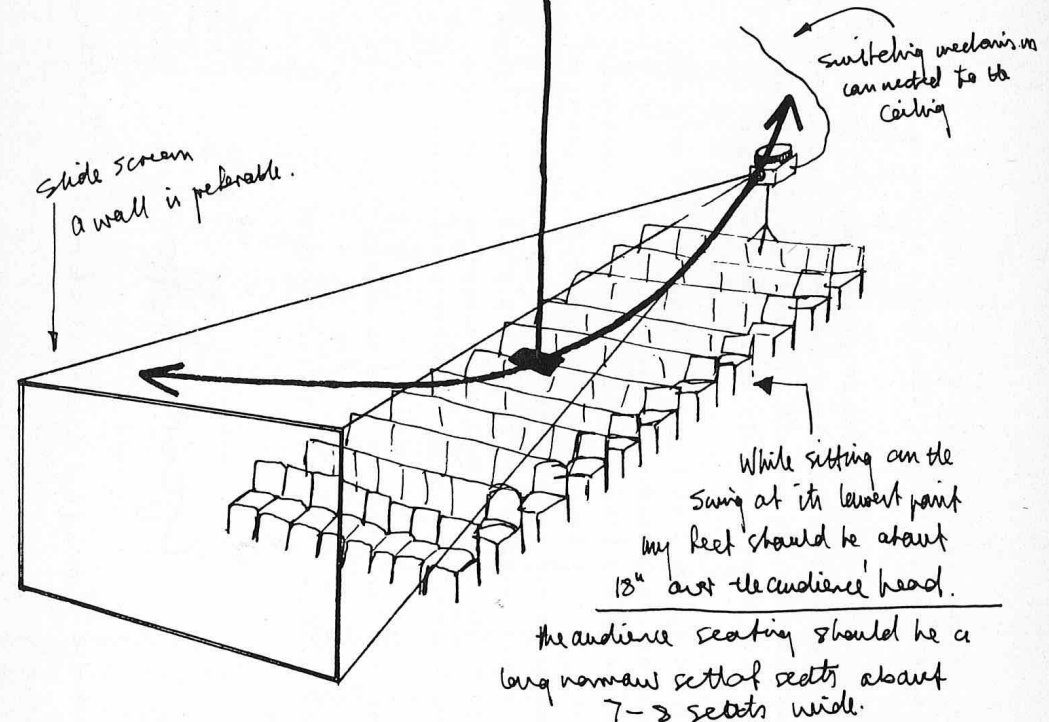 Switching mechanism
connected to the
Ceiling
slide screen
a wall is preferable.
While sitting on the
Swing at its lowest point
my feet should be about
18" over the audience' head.
the audience seating should be a
long narrow set of seats about
7-8 seats wide.